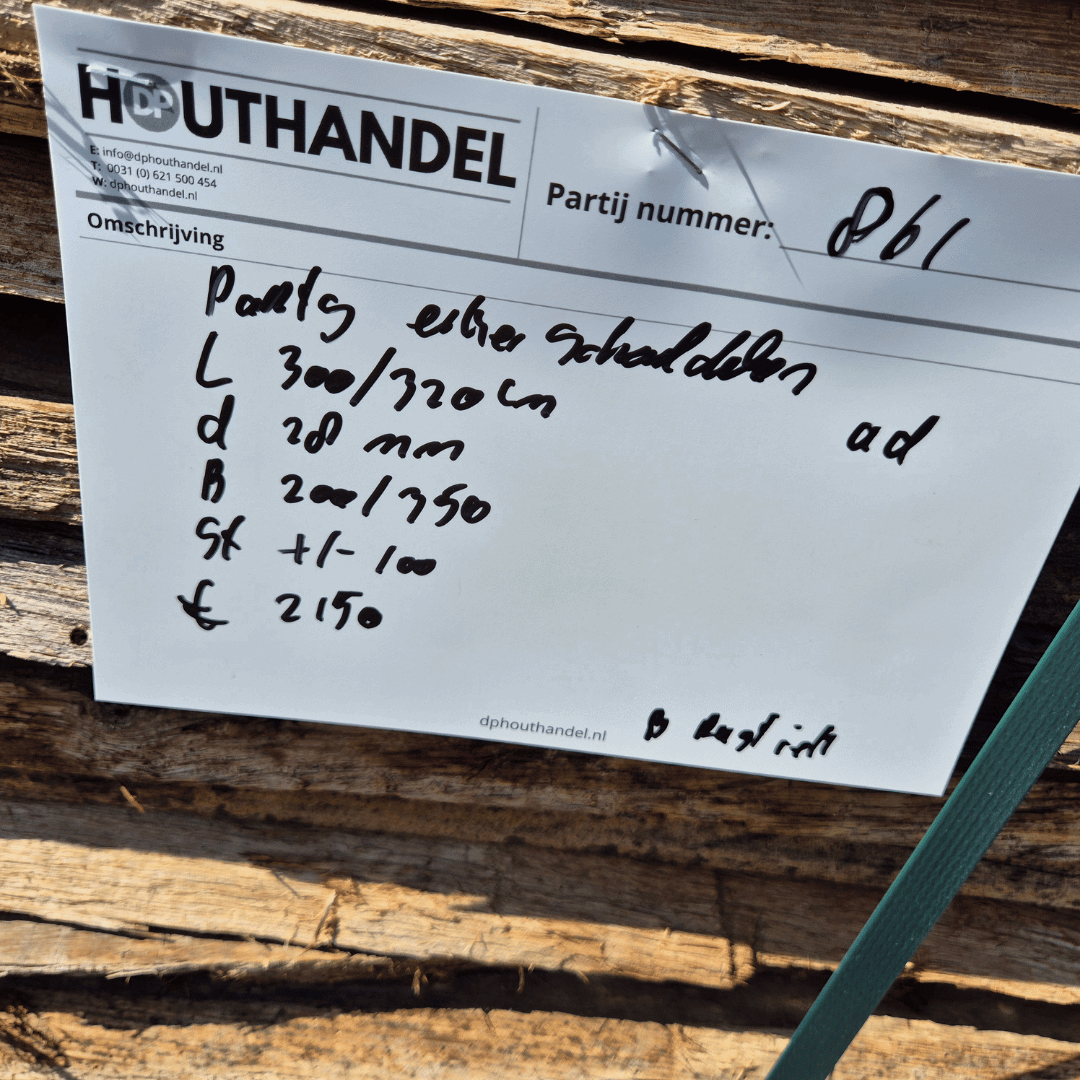 HOUTHANDEL
DP
E: info@dphouthandel.nl
T: 0031 (0) 621 500 454
W: dphouthandel.nl
Partij nummer: 861
Omschrijving
Partij eiken schaaldelen
ad
L 300/320 cm
d 28 mm
B 200/350
St +/- 100
€ 2150
dphouthandel.nl
B